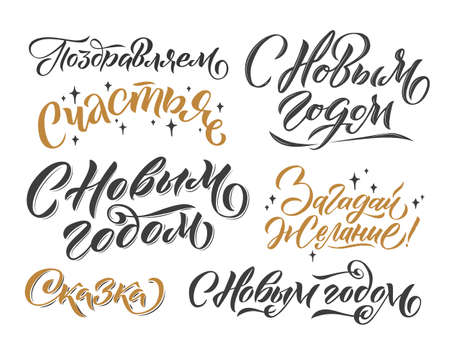 Поздравляем
Счастья
С Новым
годом
С Новым
годом
Загадай
желание!
Сказка
С Новым годом